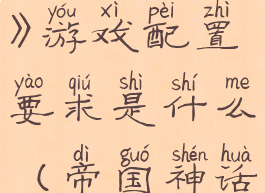 yóu xì pèi zhì
》游戏配置
yào qiú shì shí me
要求是什么
dì guó shén huà
（帝国神话